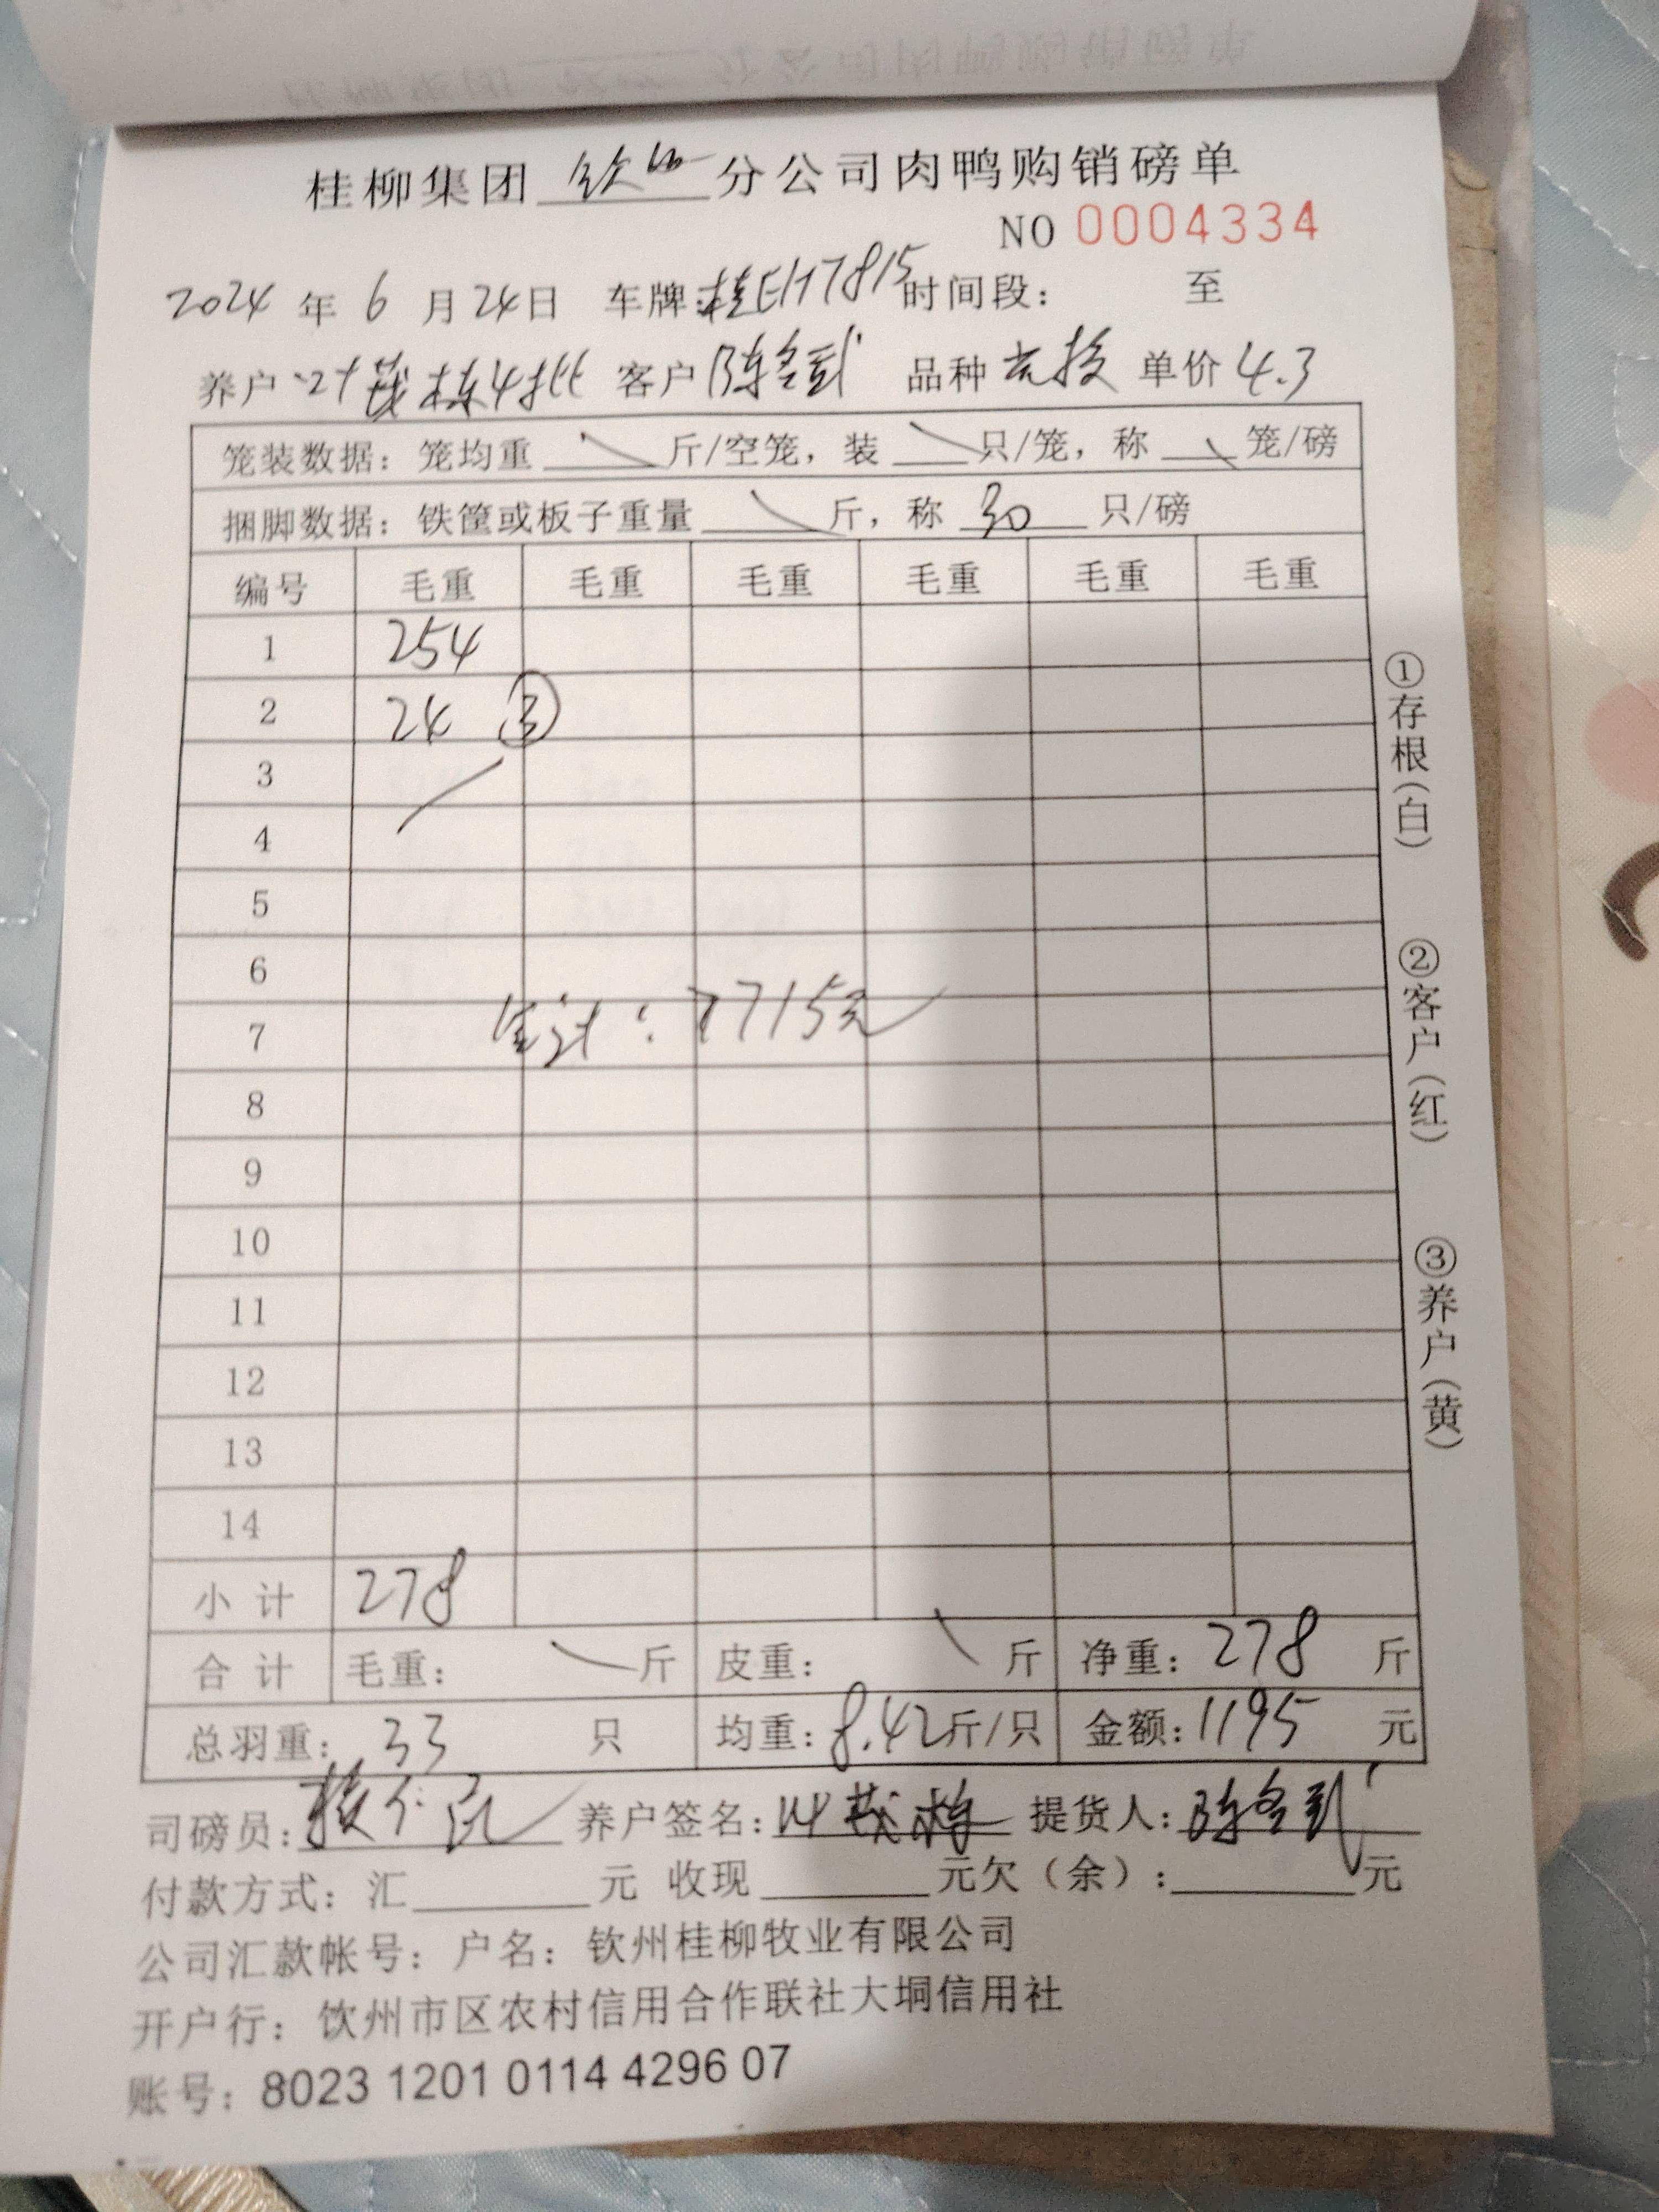 桂柳集团 钦州 分公司肉鸭购销磅单
NO 0004334
2024 年 6 月 24 日 车牌:桂EH7815 时间段: 至
养户 叶茂栋4批 客户 陈 品种 单价 4.3
笼装数据：笼均重 斤/空笼，装 只/笼，称 笼/磅
捆脚数据：铁筐或板子重量 斤，称 30 只/磅
编号 毛重 毛重 毛重 毛重 毛重 毛重
1 254
2 24 ③
3
4
5
6
7 合计：7715元
8
9
10
11
12
13
14
小 计 278
合 计 毛重： 斤 皮重： 斤 净重：278 斤
总羽重：33 只 均重：8.42斤/只 金额：1195 元
司磅员： 养户签名：叶茂栋 提货人：陈
付款方式：汇 元 收现 元欠（余）： 元
公司汇款帐号：户名：钦州桂柳牧业有限公司
开户行：钦州市区农村信用合作联社大垌信用社
账号：8023 1201 0114 4296 07
①存根(白)
②客户(红)
③养户(黄)